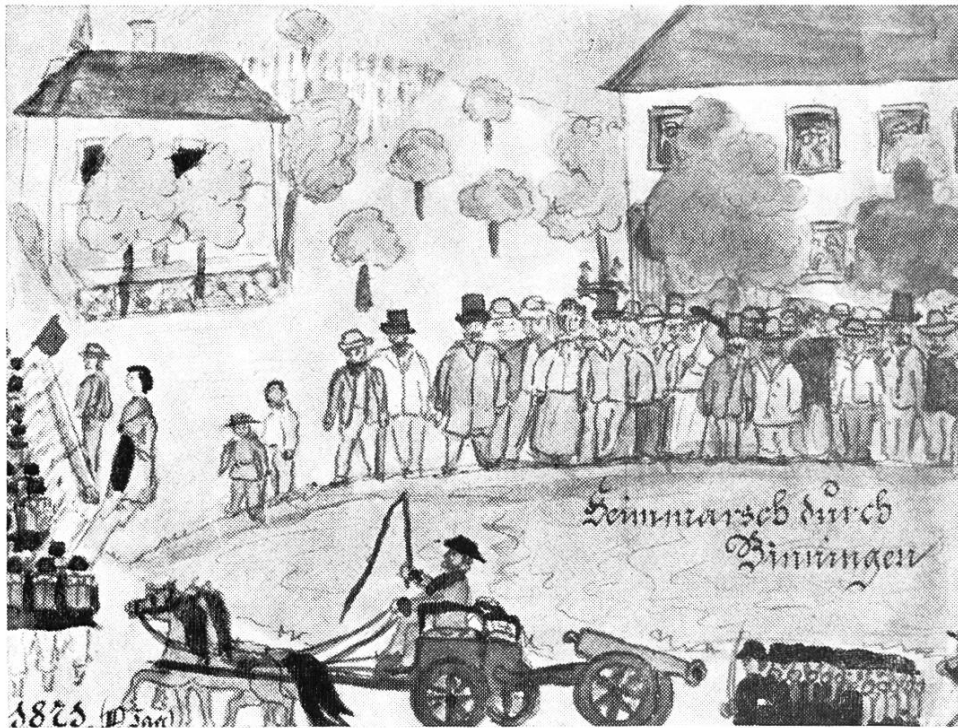 Heimmarsch durch
Binningen
1871.